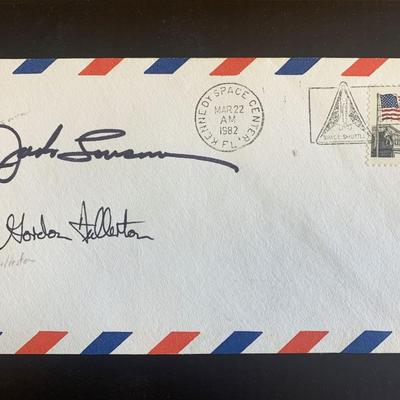 KENNEDY SPACE CENTER, FL.
MAR 22
AM
1982
SPACE SHUTTLE
Jack Lousma
Gordon Fullerton